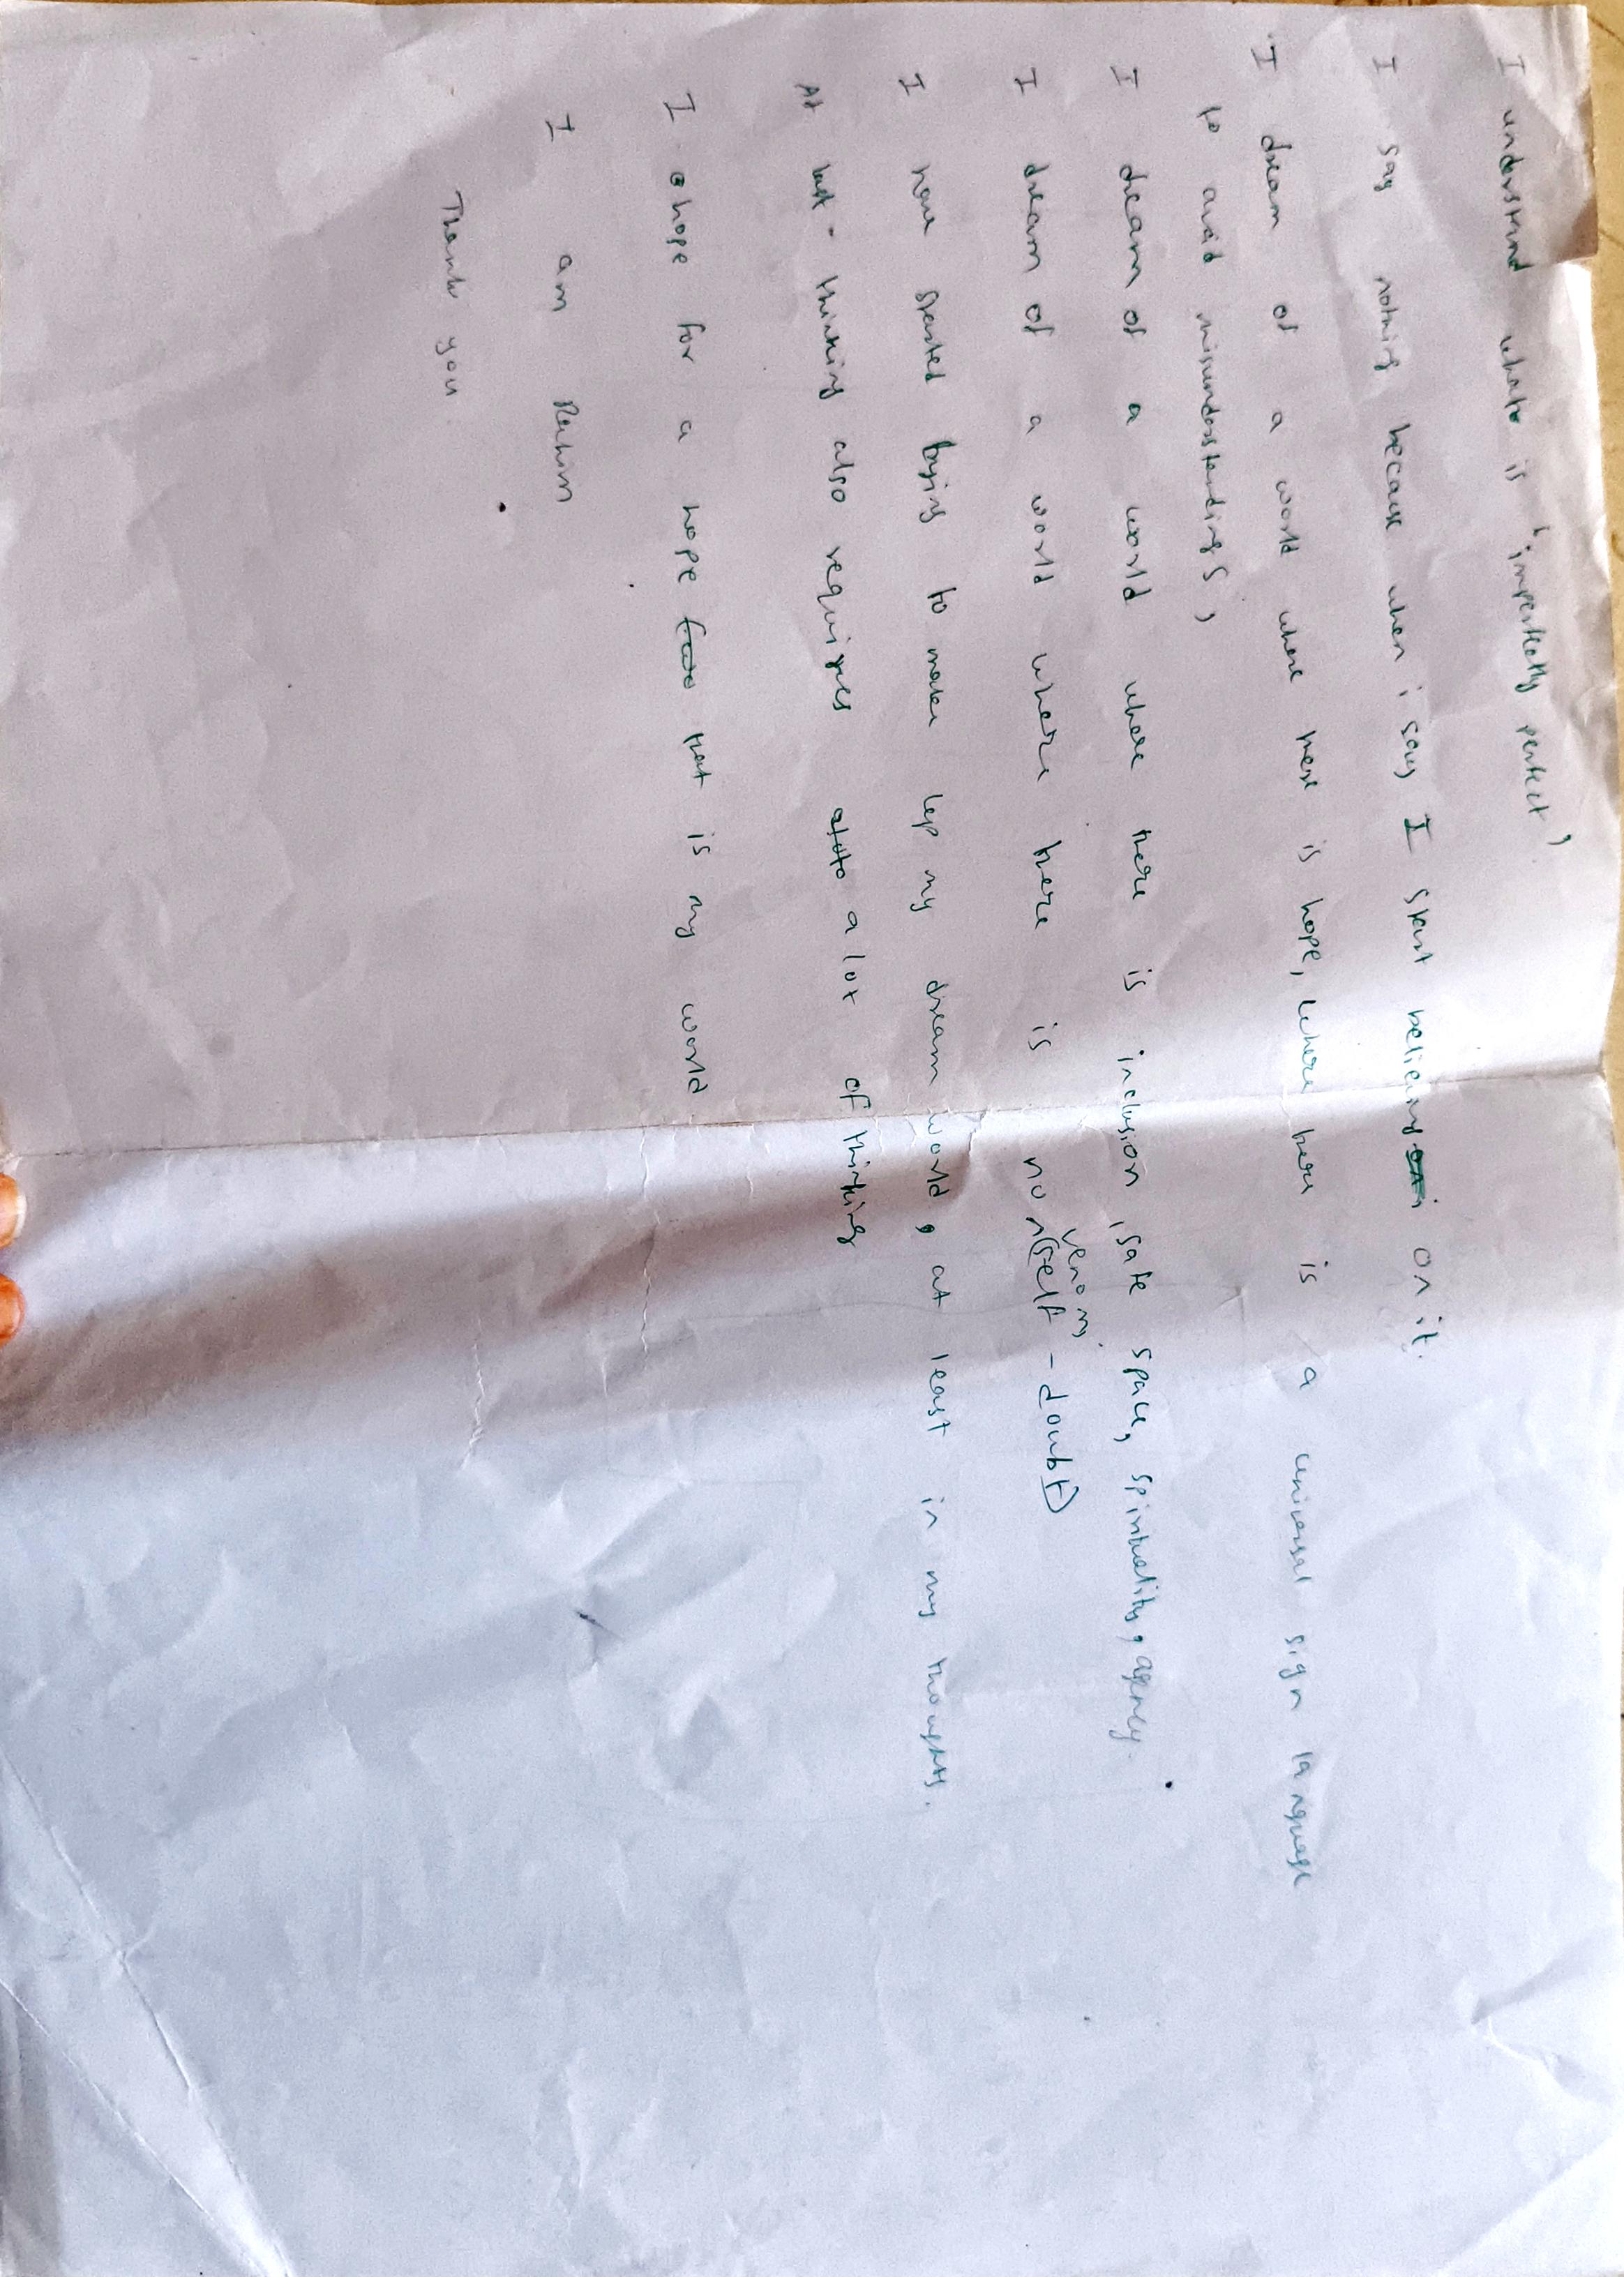 I understand what is 'imperfectly perfect'
I say nothing because when i say I start believing on it.
I dream of a world where there is hope, where there is a universal sign language
to avoid misunderstandings,
I dream of a world where there is inclusion, safe space, spirituality, agency.
I dream of a world where there is no venom, (self-doubt)
I have started trying to make up my dream world, at least in my thoughts.
At last - thinking also requires a lot of thinking
I hope for a hope that is my world
I am
Thank you